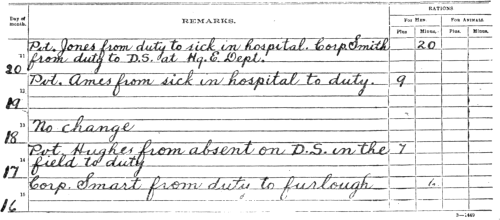 Day of month.
REMARKS.
RATIONS
FOR MEN
FOR ANIMALS.
Plus
Minus.
Plus.
Minus.
20
11
Pvt. Jones from duty to sick in hospital. Corp. Smith
from duty to D.S. at Hq. E. Dept.
20
19
12
Pvt. Ames from sick in hospital to duty.
9
18
13
No change
17
15
Pvt. Hughes from absent on D.S. in the
field to duty
7
16
14
Corp. Smart from duty to furlough
3—1469